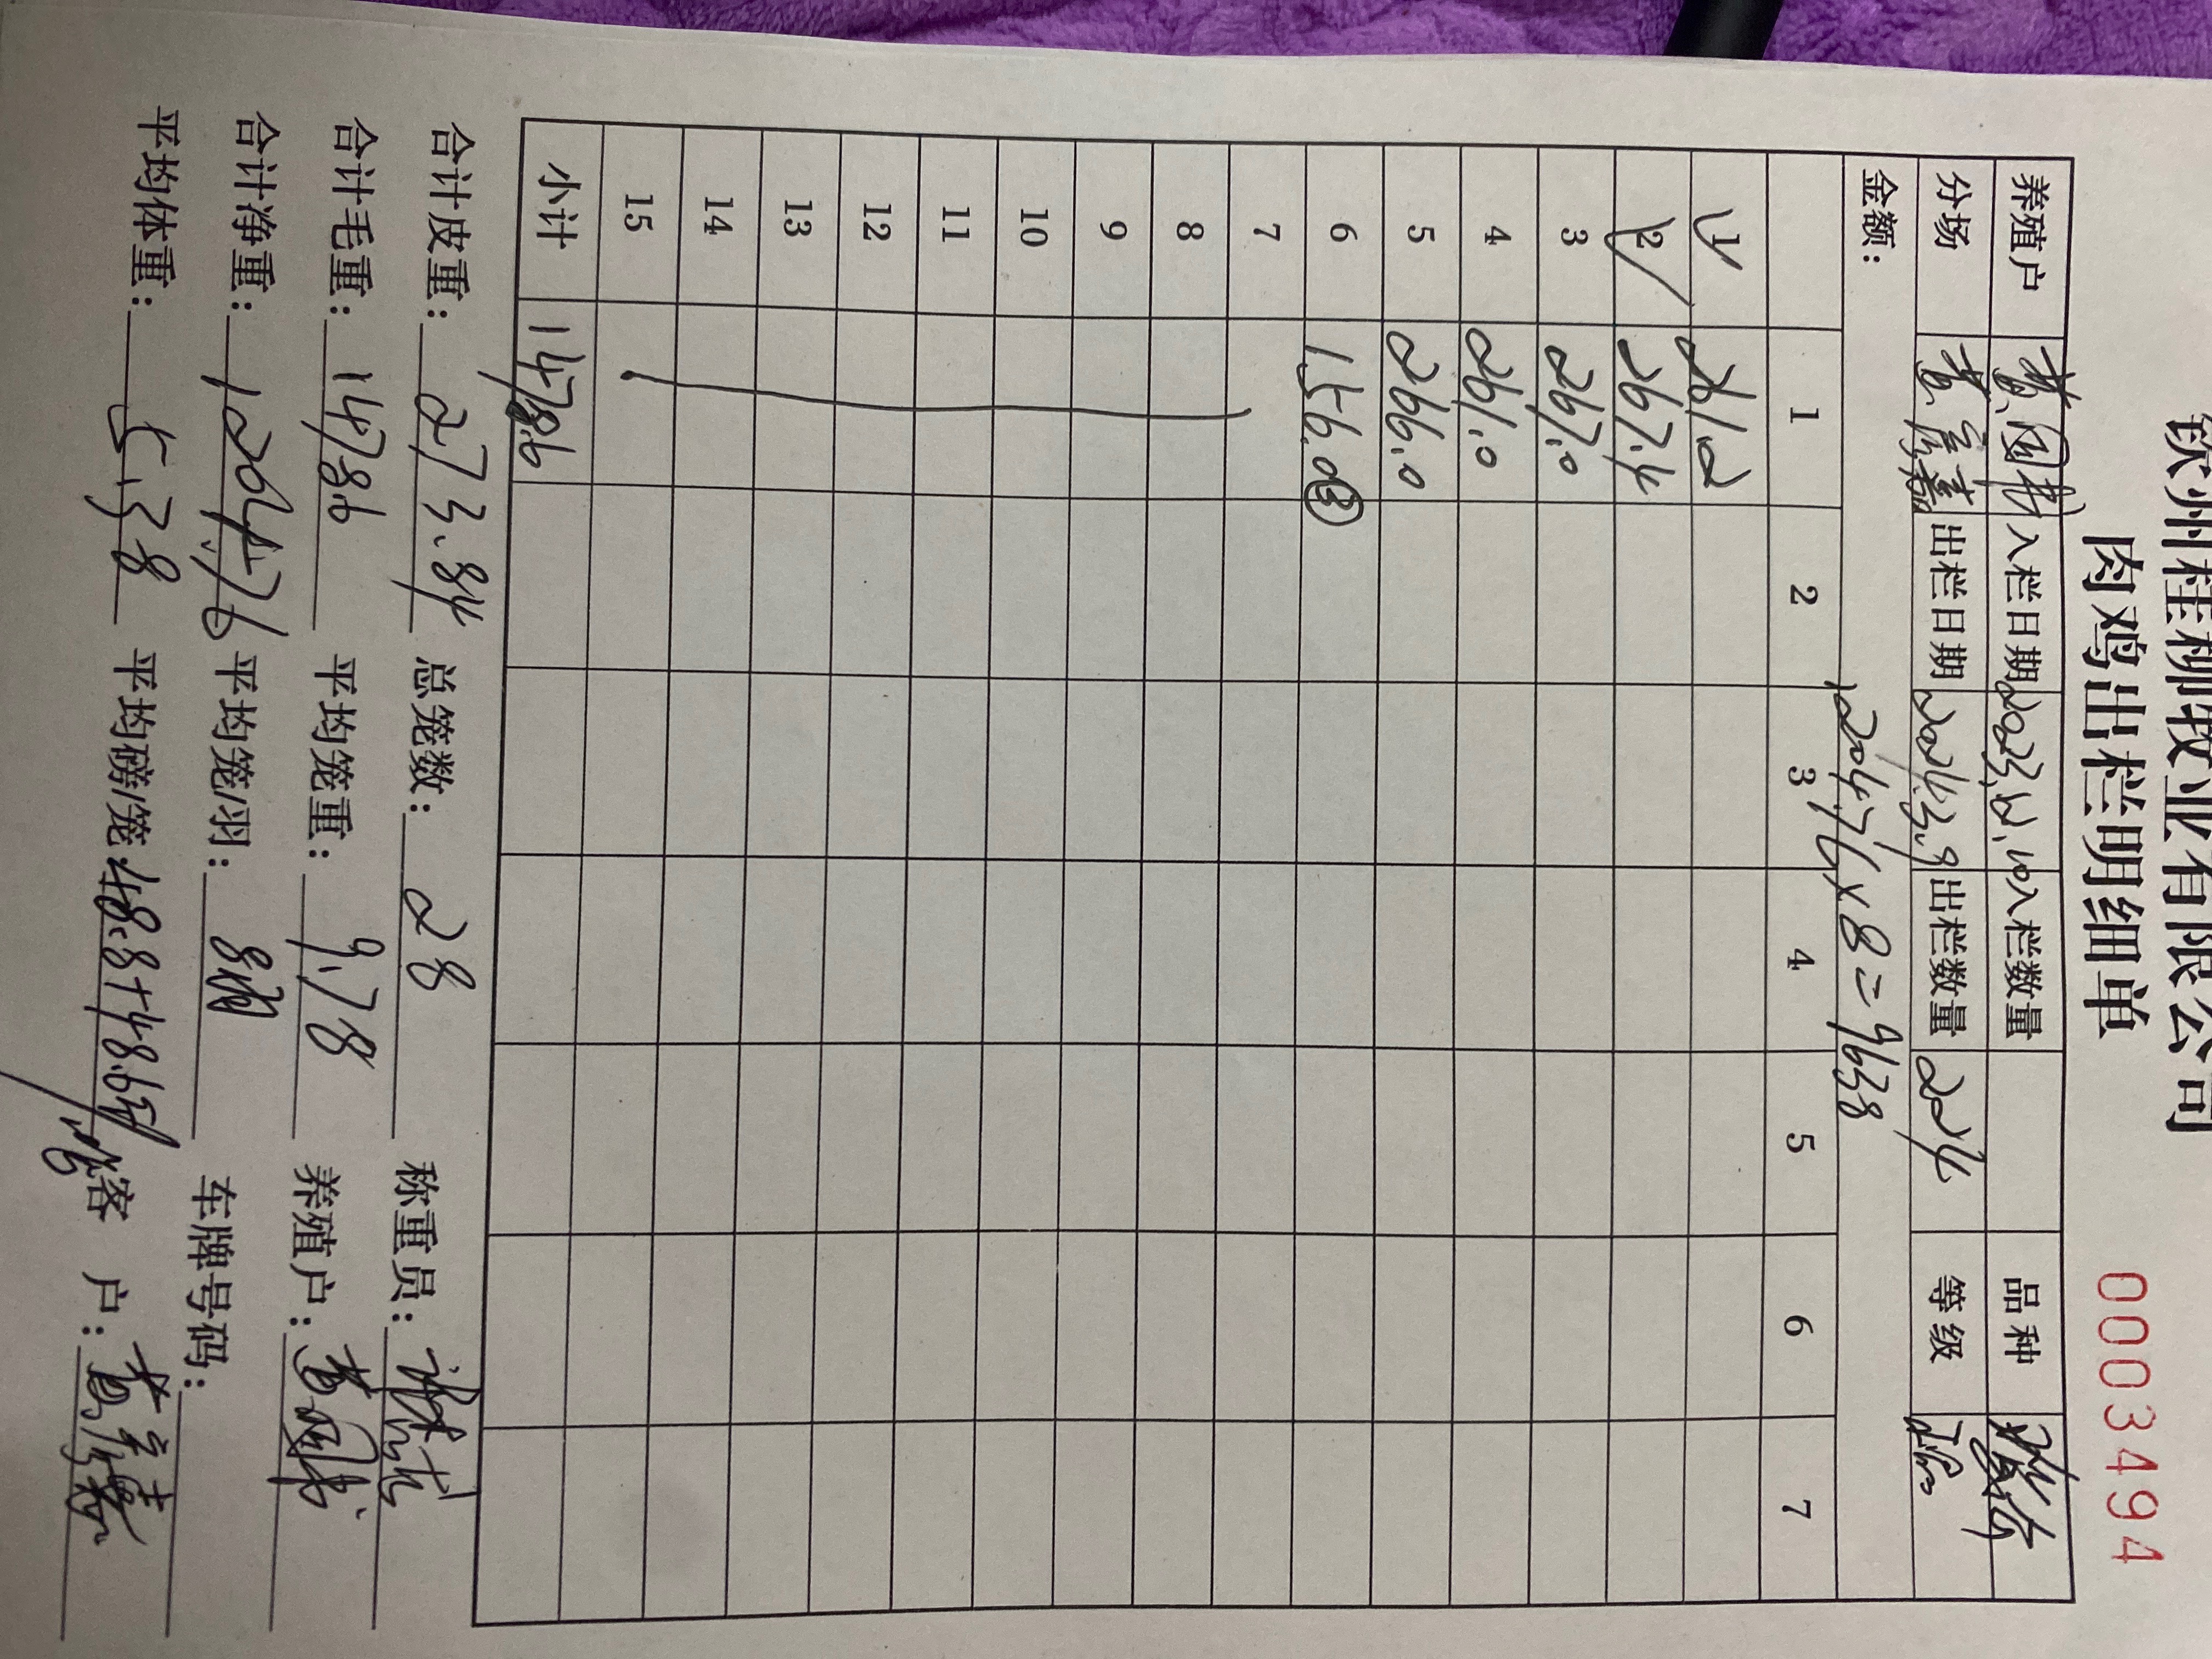 钦州桂柳牧业有限公司
肉鸡出栏明细单 0003494
养殖户 黄 入栏日期 2023.12.10 入栏数量 品种
分场 黄 出栏日期 2024.3.9 出栏数量 224 等级
金额： 1204.76×8=9638
1 2 3 4 5 6 7
1 261.2
2 267.4
3 267.0
4 261.0
5 266.0
6 156.0 ③
7
8
9
10
11
12
13
14
15
小计 1478.6
合计皮重： 273.84 总笼数： 28 称重员：
合计毛重： 1478.6 平均笼重： 9.78 养殖户： 黄
合计净重： 1204.76 平均笼/羽： 8羽 车牌号码：
平均体重： 5.38 平均磅/笼 48.8+48.6 客 户： 黄